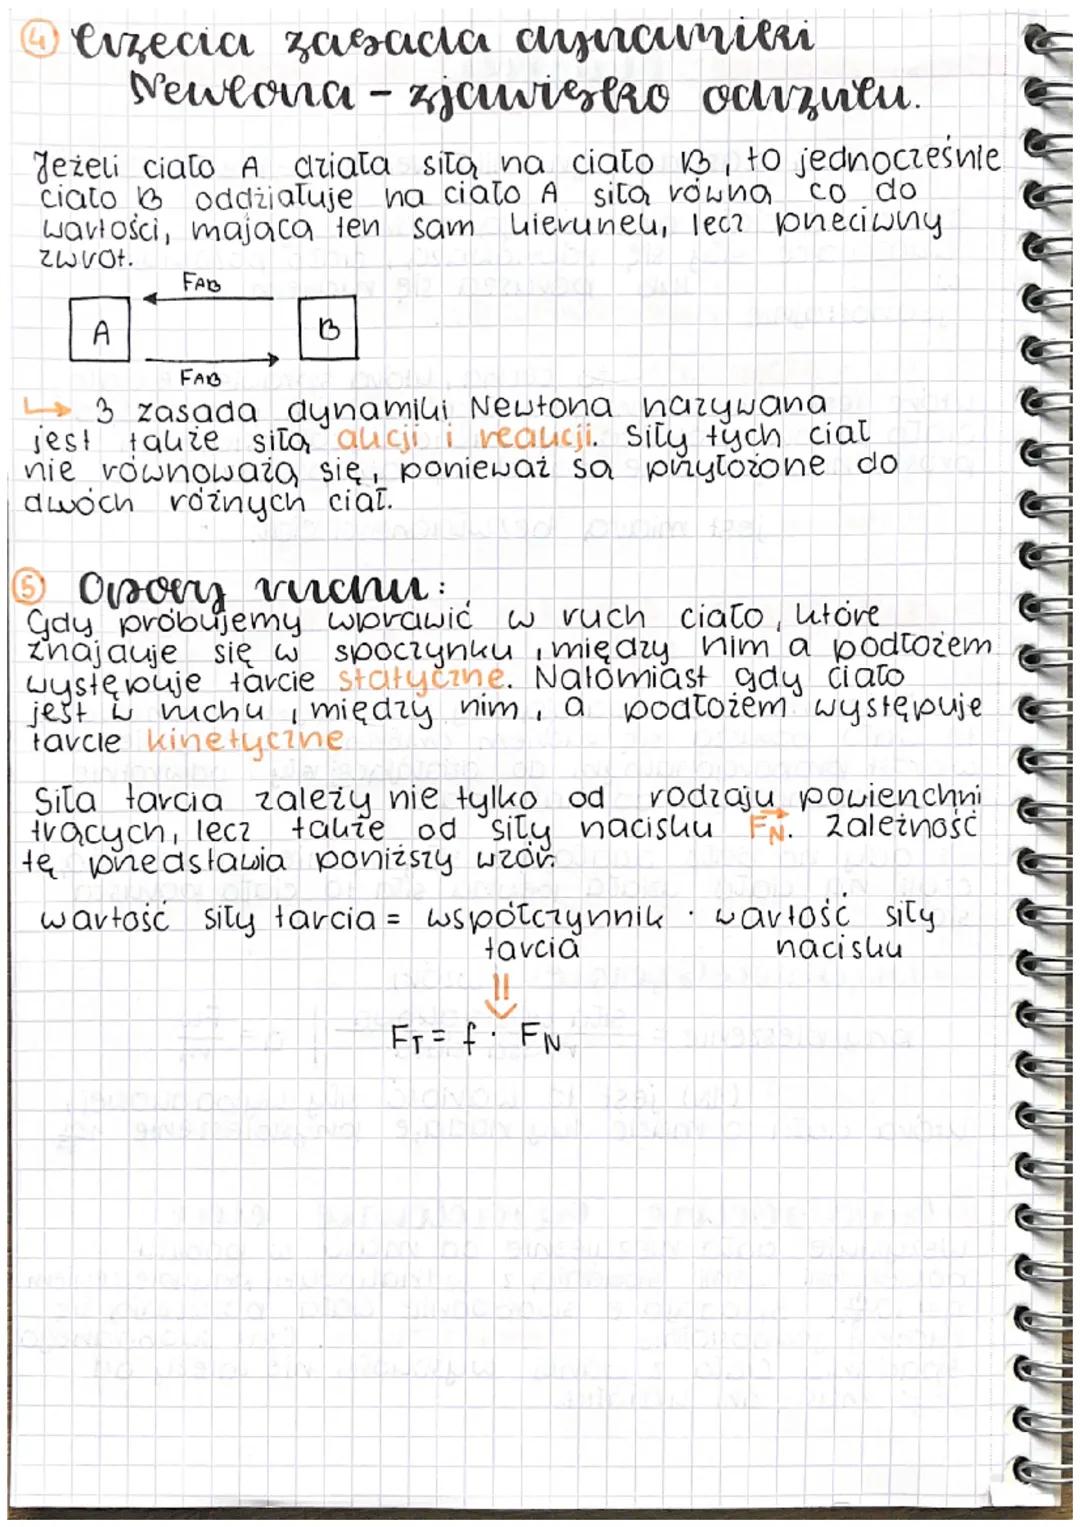 ④ Trzecia zasada dynamiki
Newtona - zjawisko odrzutu.
Jeżeli ciało A działa siłą na ciało B, to jednocześnie
ciało B oddziałuje na ciało A siłą równą co do
wartości, mającą ten sam kierunek, lecz przeciwny
zwrot.
FAB
A B
FAB
↳ 3 zasada dynamiki Newtona nazywana
jest także siłą akcji i reakcji. Siły tych ciał
nie równoważą się, ponieważ są przyłożone do
dwóch różnych ciał.
⑤ Opory ruchu:
Gdy próbujemy wprawić w ruch ciało, które
znajduje się w spoczynku, między nim a podłożem
występuje tarcie statyczne. Natomiast gdy ciało
jest w ruchu, między nim, a podłożem występuje
tarcie kinetyczne
Siła tarcia zależy nie tylko od rodzaju powierzchni
trących, lecz także od siły nacisku FN. Zależność
tę przedstawia poniższy wzór:
wartość siły tarcia = współczynnik · wartość siły
tarcia nacisku
⇓
FT = f · FN